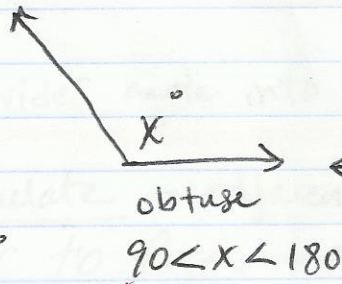 x°
obtuse
90<x<180